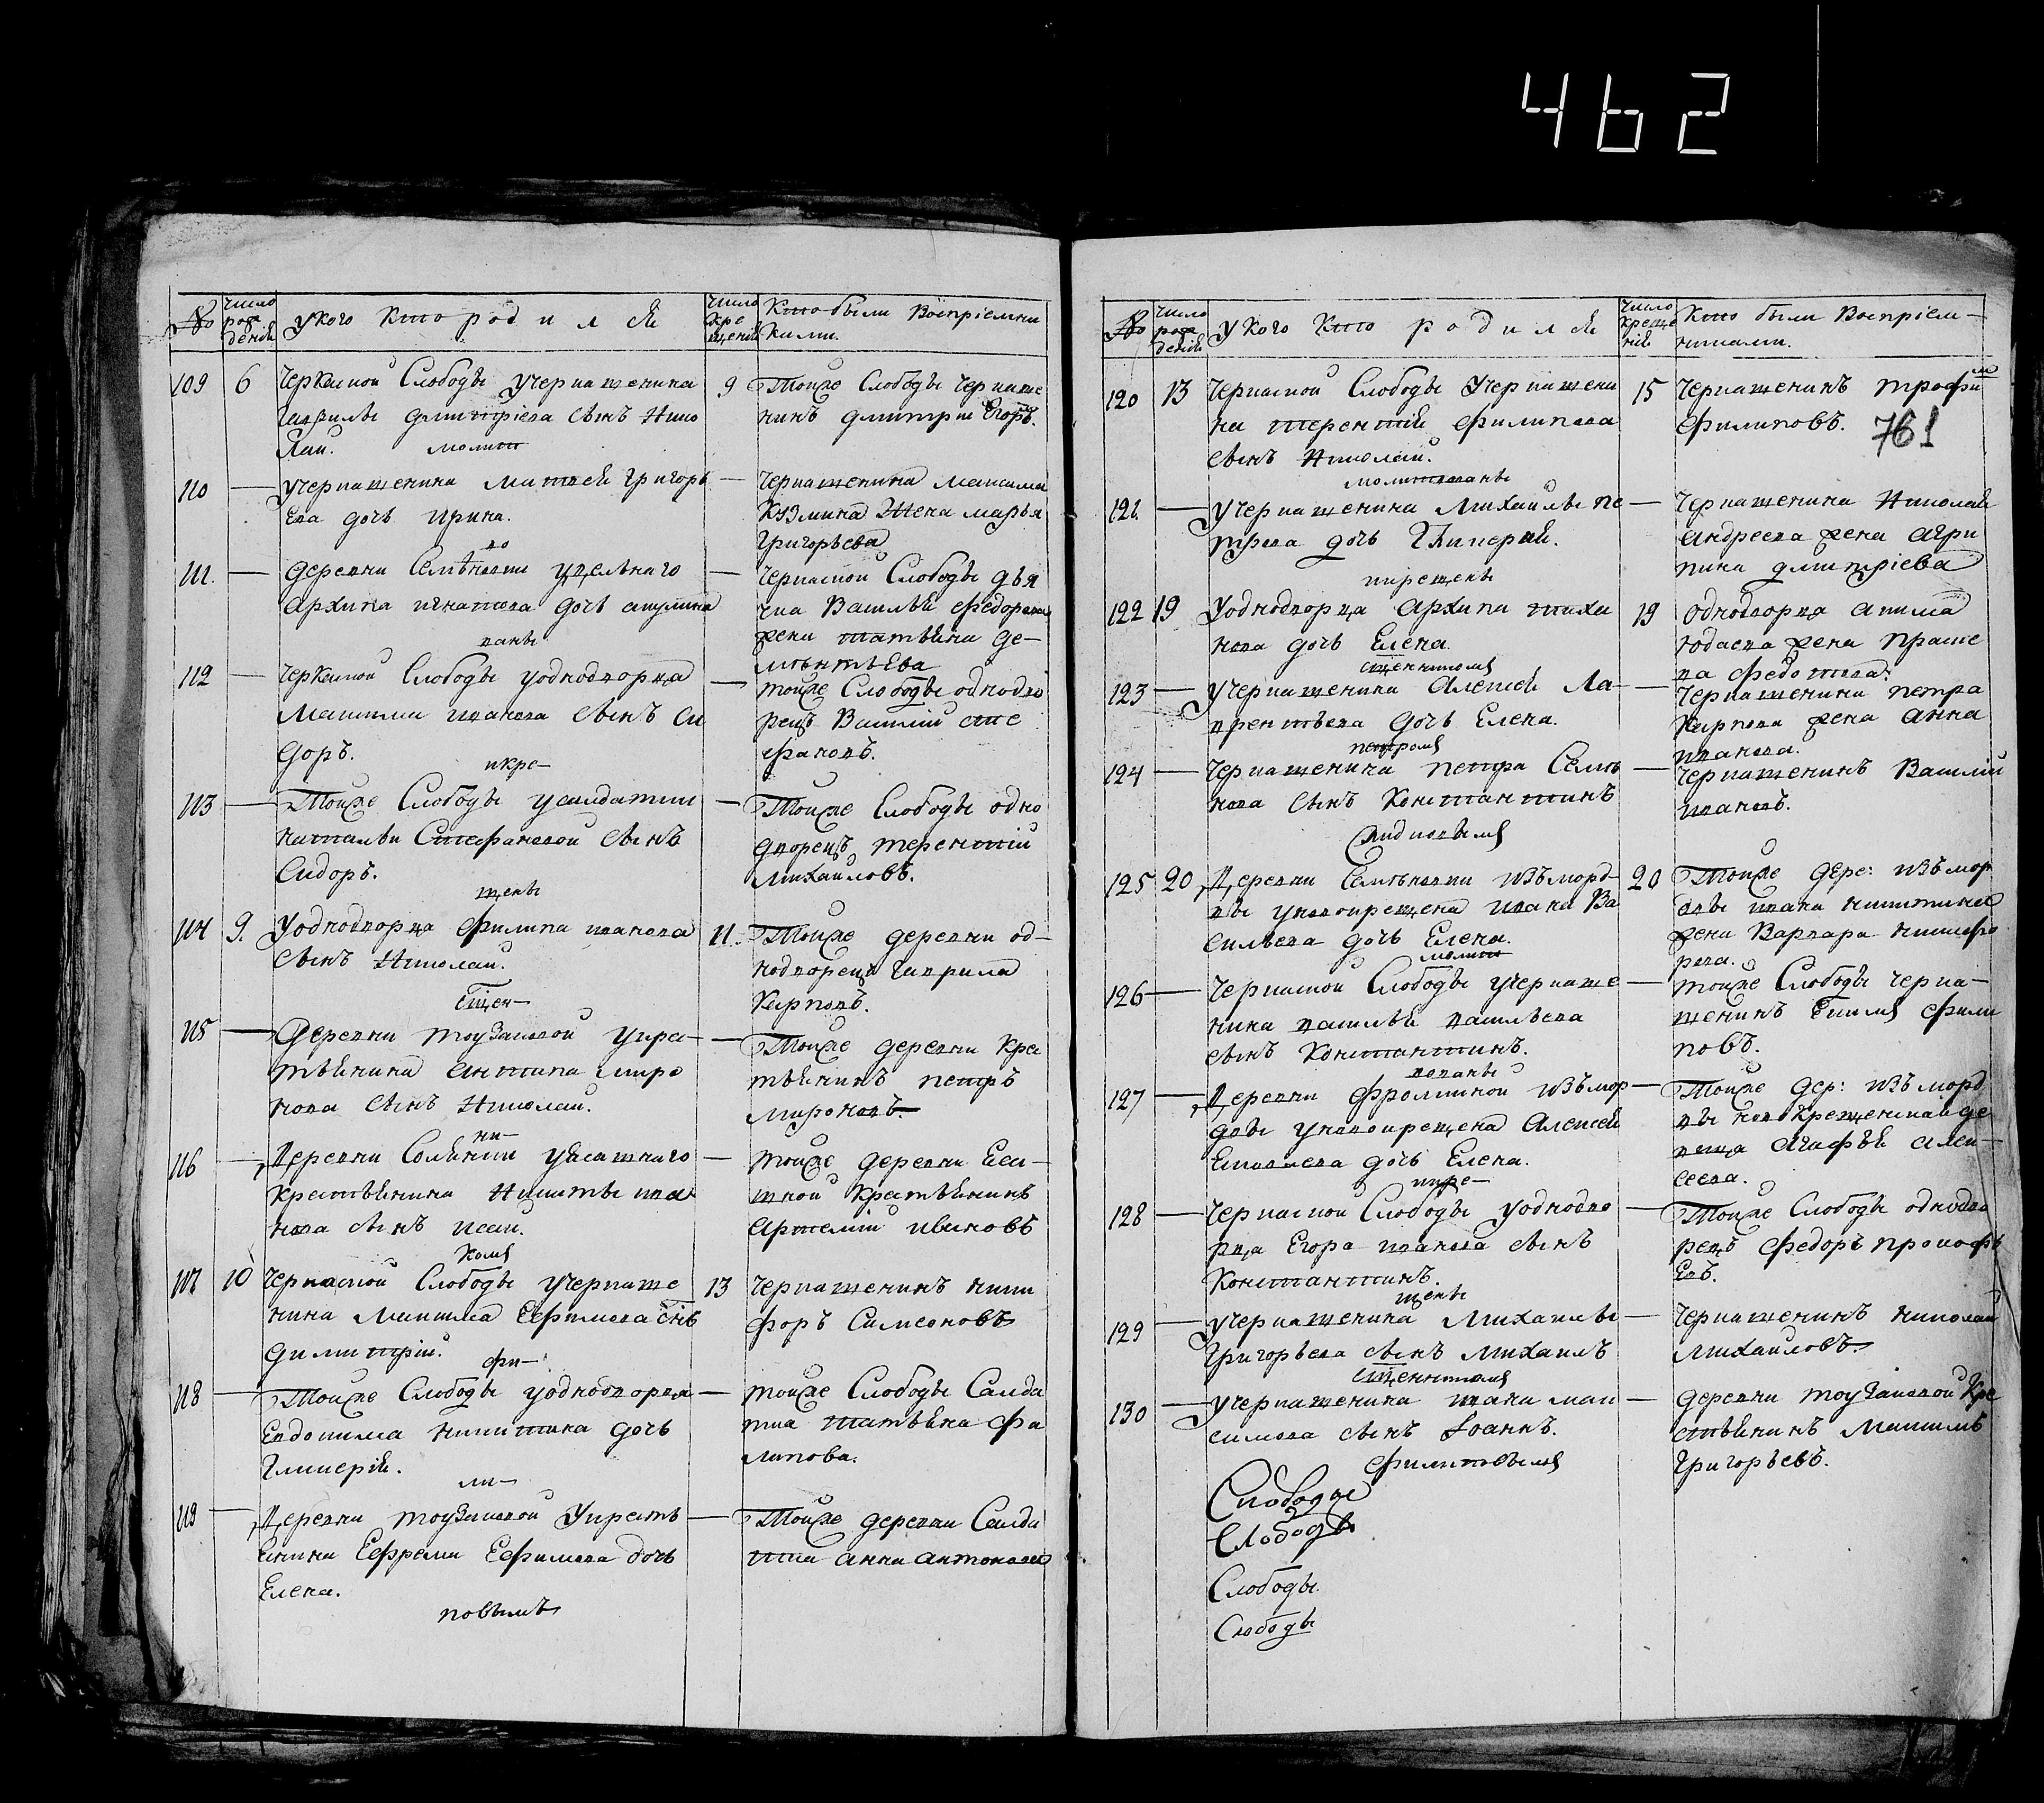 462
№
число рождения
у кого кто родился
число крещения
Кто были Восприемниками.
109 6 Черкаской Слободы у черкашенина
Гаврилы Дмитриева сынъ Нико
лай.
молит
9 Тойже Слободы черкаше
нинъ Дмитри Егоръ.
110 — у черкашенина Матвея Григорь
ева дочь Ирина.
во
— черкашенина Максима
Кузмина жена Марья
Григорьева
111. — деревни Семѣновки удельнаго
Архипа Игнатева дочь Акулина
ваны
— Черкаской Слободы дья
чка Василья Федорова
жена Татьяна Де-
ментьева
112 — Черкаской Слободы у однодворца
Максима Иванова сынъ Си
доръ.
икре-
— тойже Слободы однодво
рецъ Василий Сте
фановъ.
113 — Тойже Слободы у салдатки
Натальи Стефановой сынъ
Сидоръ.
щены
— Тойже Слободы одно
дворецъ Терентий
Михайловъ.
114 9. У однодворца Филипа Иванова
сынъ Николай.
сщен-
11. Тойже деревни од-
нодворецъ Гаврила
Карповъ.
115 — Деревни Тоузаковой у кре-
тьянина Антипа Миро
нова сынъ Николай.
— Тойже деревни кре
тьянинъ Петръ
Мироновъ.
116 — Деревни у ясашнаго
ни-
крестьянина Никиты Ива
нова сынъ Исаи.
комъ
— тойже деревни яса-
шной крестьянинъ
Артемий Ивановъ
117 10 Черкаской Слободы у черкаше
нина Максима Ефимова снъ
Димитрий.
фи-
13 черкашенинъ Ники
форъ Симеоновъ
118 — Тойже Слободы у однодворца
Евдокима Никитина дочь
Гликерия.
ли-
— тойже Слободы Салда
тка Татьяна Фи
липова.
119 — Деревни Тоузаковой у крестья
янина Ефрема Ефимова дочь
Елена.
повымъ
— Тойже деревни Салда
тка Анна Антонова
№
число рождения
у кого кто родился
число крещения
Кто были Восприем-
никами.
120 13 Черкаской Слободы у черкашени
на Терентия Филипова
сынъ Николай.
молитвованы
15 черкашенинъ Трофим
Филиповъ.
761
121. — у черкашенина Михайлы Пе
трова дочь Гликерия.
икрещены
— черкашенина Николая
Андреева жена Агри
пина Дмитриева
122 19 У однодворца Архипа Тиха
нова дочь Елена.
сщенникомъ
19 однодворца Акима
Юдаева жена Праске
ва Федотова.
123 — у черкашенина Алексея Ла-
врентьева дочь Елена.
петромъ
— черкашенина Петра
Карпова жена Анна
Иванова.
124 — Черкашенина Петра Семѣ
нова сынъ Константинъ
— Черкашенинъ Василий
Ивановъ.
125 20 Деревни Семѣновки изъ морд-
вы у новокрещена Ивана Ва
сильева дочь Елена.
молит
20 Тойже дере: изъ мор
двы Ивана Никитина
жена Варвара Никифо
рова.
126 — Черкаской Слободы у черкаше
нина Василья Васильева
сынъ Константинъ.
вованы
— тойже Слободы черка-
шенинъ Екимъ Фили
повъ.
127 — Деревни Фромкиной изъ мор
двы у новокрещена Алексея
дочь Елена.
икре-
— Тойже дер: изъ морд
вы новокрещенская де
вица Агафья Алек-
сеева.
128 — Черкаской Слободы у однодво
рца Егора Иванова сынъ
Константинъ.
щены
— Тойже Слободы однодво
рецъ Федоръ Прокофь
евъ.
129 — у черкашенина Михайлы
Григорьева сынъ Михаилъ
сщенникомъ
— Черкашенинъ Николай
Михайловъ.
130 — у черкашенина Ивана Мак
симова сынъ Иоаннъ.
филиповымъ
— деревни Тоузаковой кре
стьянинъ Максимъ
Григорьевъ.
Слободы
Слободы
Слободы.
Слободы